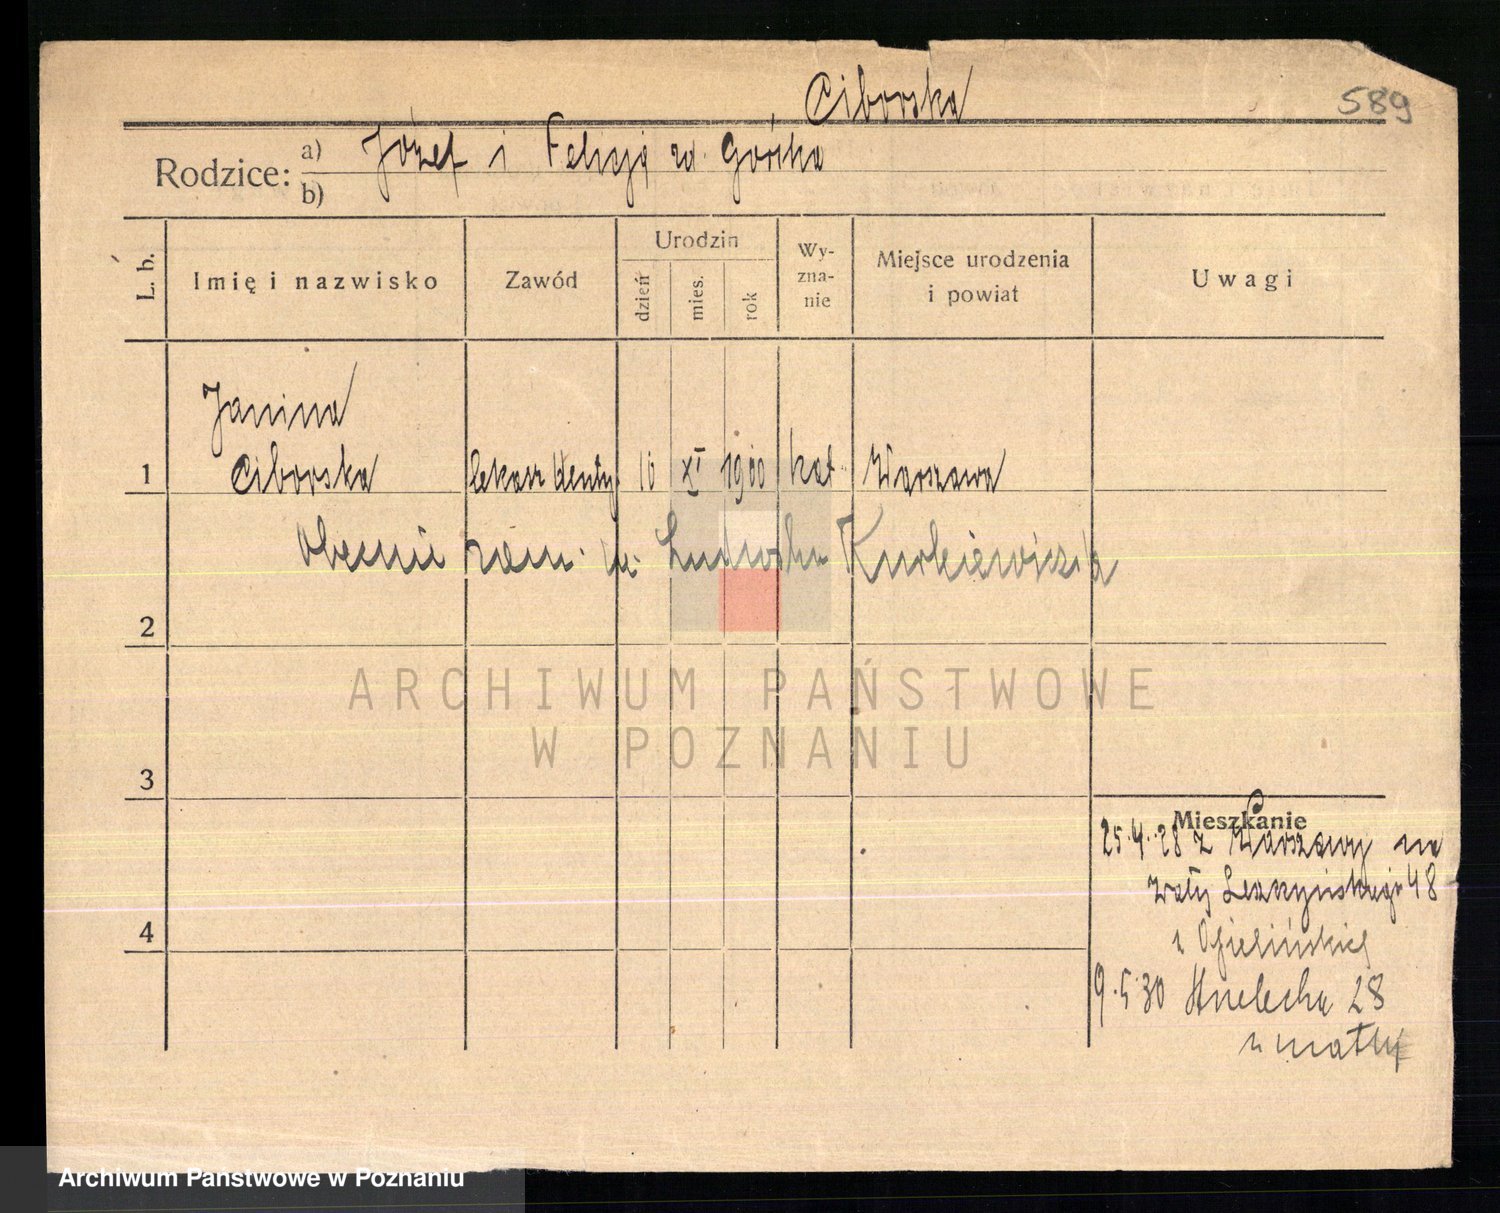 Ciborska
589
Rodzice: a) Józef i Felicja zd. Górska
b)
L. b. Imię i nazwisko Zawód Urodzin dzień mies. rok Wy-zna-nie Miejsce urodzenia i powiat Uwagi
Janina
1 Ciborska lekarz denty 10 XI 1900 kat. Warszawa
Obecnie zam. Ludwika Kurkiewicza
2
ARCHIWUM PAŃSTWOWE
W POZNANIU
3
Mieszkanie
25.4.28 z Warszawy na
Wały Leszczyńskiego 48
4
9.5.30 28
u matki
Archiwum Państwowe w Poznaniu